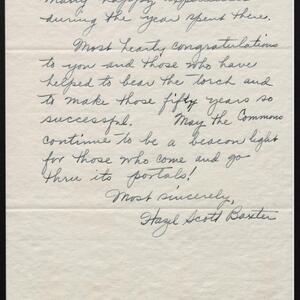 many happy experiences
during the year spent there.
Most hearty congratulations
to you and those who have
helped to bear the torch and
to make those fifty years so
successful. May the Commons
continue to be a beacon light
for those who come and go
thru its portals!
Most sincerely,
Hazel Scott Baxter